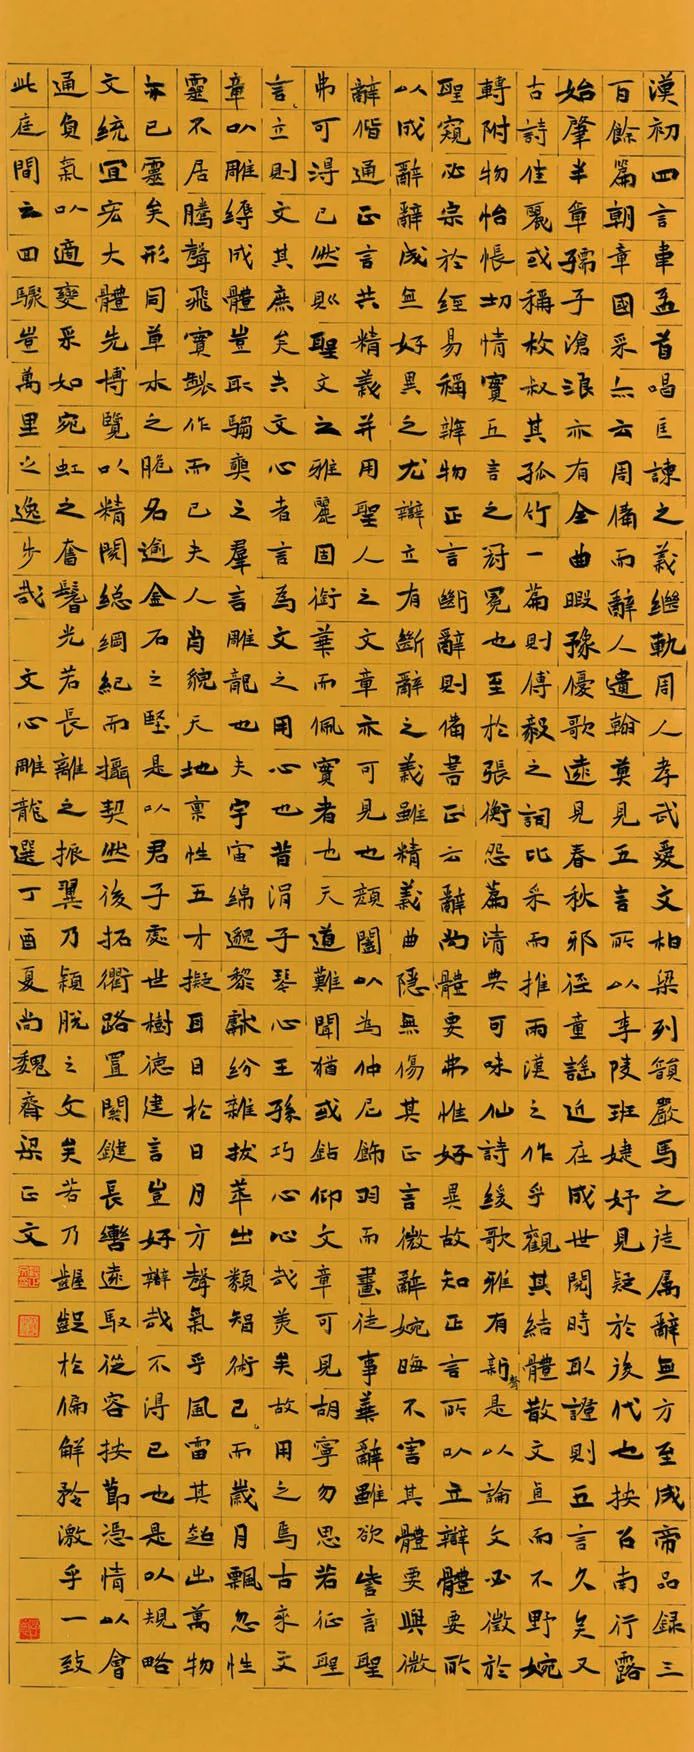 漢初四言韋孟首唱匡諫之義繼軌周人孝武愛文柏梁列韻嚴馬之徒属辭無方至成帝品録三
百餘篇朝章國采亦云周備而辭人遺翰莫見五言所以李陵班婕妤見疑於後代也按召南行露
始肇半章孺子滄浪亦有全曲暇豫優歌遠見春秋邪徑童謠近在成世閱時取證則五言久矣又
古詩佳麗或稱枚叔其孤竹一篇則傅毅之詞比采而推兩漢之作乎觀其結體散文直而不野婉
轉附物怊悵切情實五言之冠冕也至於張衡怨篇清典可味仙詩緩歌雅有新聲是以論文必徵於
聖窺必宗於經易稱辨物正言斷辭則備書正云辭尚體要弗惟好異故知正言所以立辯體要所
以成辭辭成無好異之尤辯立有斷辭之義雖精義曲隱無傷其正言微辭婉晦不害其體要與微
辭偕通正言共精義并用聖人之文章亦可見也顔闔以為仲尼飾羽而畫徒事華辭雖欲訾言聖
弗可得已然則聖文之雅麗固銜華而佩實者也天道難聞猶或鉆仰文章可見胡寧勿思若征聖
言立則文其庶矣夫文心者言為文之用心也昔涓子琴心王孫巧心心哉美矣故用之焉古來文
章以雕縟成體豈取騶奭之羣言雕龍也夫宇宙綿邈黎獻紛雜拔萃出類智術已而歲月飄忽性
靈不居騰聲飛實製作而已夫人肖貌天地稟性五才擬耳目於日月方聲氣乎風雷其超出萬物
亦已靈矣形同草木之脆名逾金石之堅是以君子處世樹德建言豈好辯哉不得已也是以規略
文統宜宏大體先博覽以精閱總綱紀而攝契然後拓衢路置關鍵長轡遠馭從容按節憑情以會
通負氣以適變采如宛虹之奮鬐光若長離之振翼乃穎脫之文矣若乃齷齪於偏解矜激乎一致
此庭間云回驟豈萬里之逸步哉 文心雕龍選丁酉夏尚魏齋梁正文